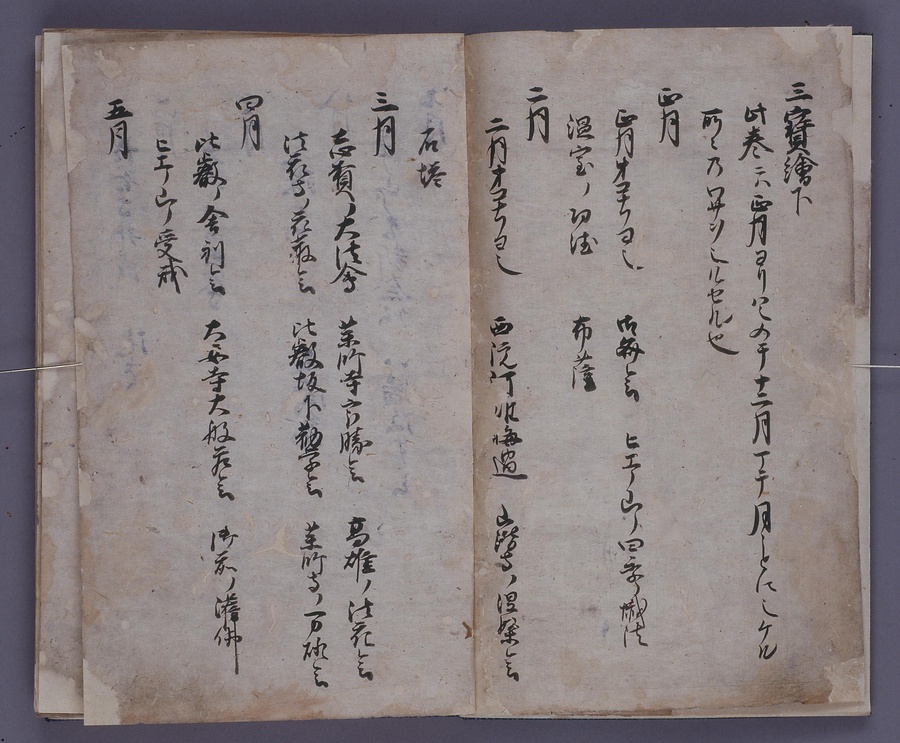 三寳繪下
此巻ニハ正月ヨリハシメテ十二月マテ月コトニシケル
所〻ノワサヲシルセル也
正月
正月オコナヒ 御齊会 ヒエ山ノ四季懺法
温室ノ功徳 布薩
二月
二月オコナヒ 西院阿難悔過 山階寺ノ涅槃会
石塔
三月
志賀ノ大法會 薬師寺宗勝会 高雄ノ法花会
法花寺ノ花厳会 比叡坂下勧学会 薬師寺ノ万灯会
四月
比叡ノ舎利会 大安寺大般若会 御前ノ灌佛
ヒエ山受戒
五月